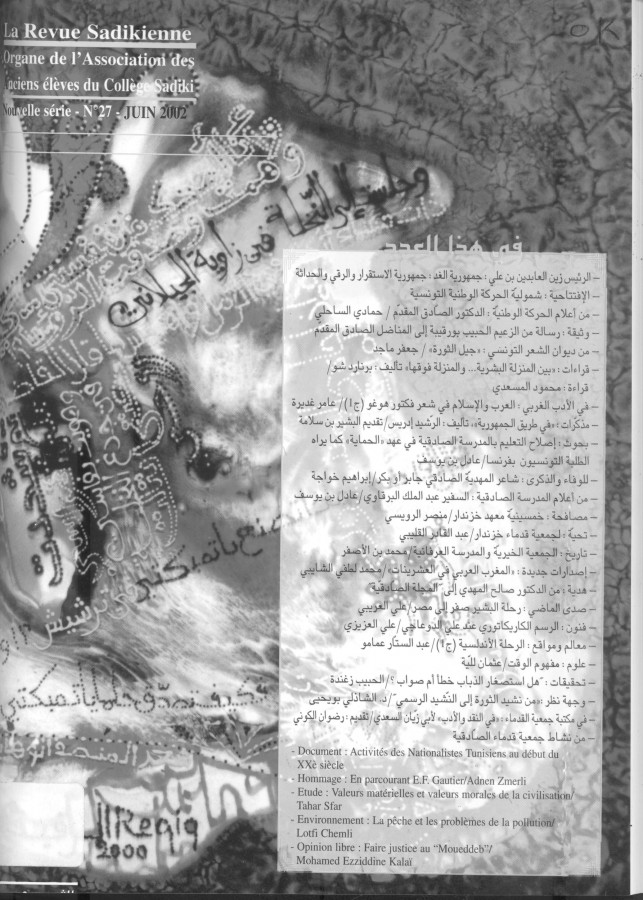 La Revue Sadikienne
Organe de l'Association des
Anciens élèves du Collège Sadiki
Nouvelle série - N°27 - JUIN 2002
OK
وجلست إلى النخلة في زاوية الجيلاني
في هذا العدد
– الرئيس زين العابدين بن علي : جمهورية الغد : جمهورية الاستقرار والرقي والحداثة
– الإفتتاحية : شمولية الحركة الوطنية التونسية
– من أعلام الحركة الوطنية : الدكتور الصادق المقدم / حمادي الساحلي
– وثيقة : رسالة من الزعيم الحبيب بورقيبة إلى المناضل الصادق المقدم
– من ديوان الشعر التونسي : «جيل الثورة» / جعفر ماجد
– قراءات : «بين المنزلة البشرية... والمنزلة فوقها» تأليف : برنارد شو/
قراءة : محمود المسعدي
– في الأدب الغربي : العرب والإسلام في شعر فكتور هوغو (ج1)/ عامر غديرة
– مذكرات : «في طريق الجمهورية»، تأليف : الرشيد إدريس/ تقديم البشير بن سلامة
– بحوث : إصلاح التعليم بالمدرسة الصادقية في عهد «الحماية» كما يراه
الطلبة التونسيون بفرنسا/ عادل بن يوسف
– للوفاء والذكرى : شاعر المهدية الصادقي جابر أو بكر/ إبراهيم خواجة
– من أعلام المدرسة الصادقية : السفير عبد الملك البرقاوي/ عادل بن يوسف
– مصافحة : خمسينية معهد خزندار/ منصر الرويسي
– تحية : لجمعية قدماء خزندار/ عبد القادر القليبي
– تاريخ : الجمعية الخيرية والمدرسة العرفانية/ محمد بن الأصفر
– إصدارات جديدة : «المغرب العربي في العشرينات»/ محمد لطفي الشايبي
– هدية : من الدكتور صالح المهدي إلى "المجلة الصادقية"
– صدى الماضي : رحلة البشير صفر إلى مصر/ علي العريبي
– فنون : الرسم الكاريكاتوري عند علي الدوعاجي/ علي العزيزي
– معالم ومواقع : الرحلة الأندلسية (ج1)/ عبد الستار عمامو
– علوم : مفهوم الوقت/ عثمان للية
– تحقيقات : "هل استصغار الذباب خطأ أم صواب ؟"/ الحبيب زغندة
– وجهة نظر : «من نشيد الثورة إلى النشيد الرسمي»/ د. الشاذلي بويحيى
– في مكتبة جمعية القدماء : «في النقد والأدب» لأبي زيان السعدي/ تقديم : رضوان الكوني
– من نشاط جمعية قدماء الصادقية
- Document : Activités des Nationalistes Tunisiens au début du
XXè siècle
- Hommage : En parcourant E.F. Gautier/Adnen Zmerli
- Etude : Valeurs matérielles et valeurs morales de la civilisation/
Tahar Sfar
- Environnement : La pêche et les problèmes de la pollution/
Lotfi Chemli
- Opinion libre : Faire justice au "Moueddeb"/
Mohamed Ezziddine Kalaï
Reqiq
2000